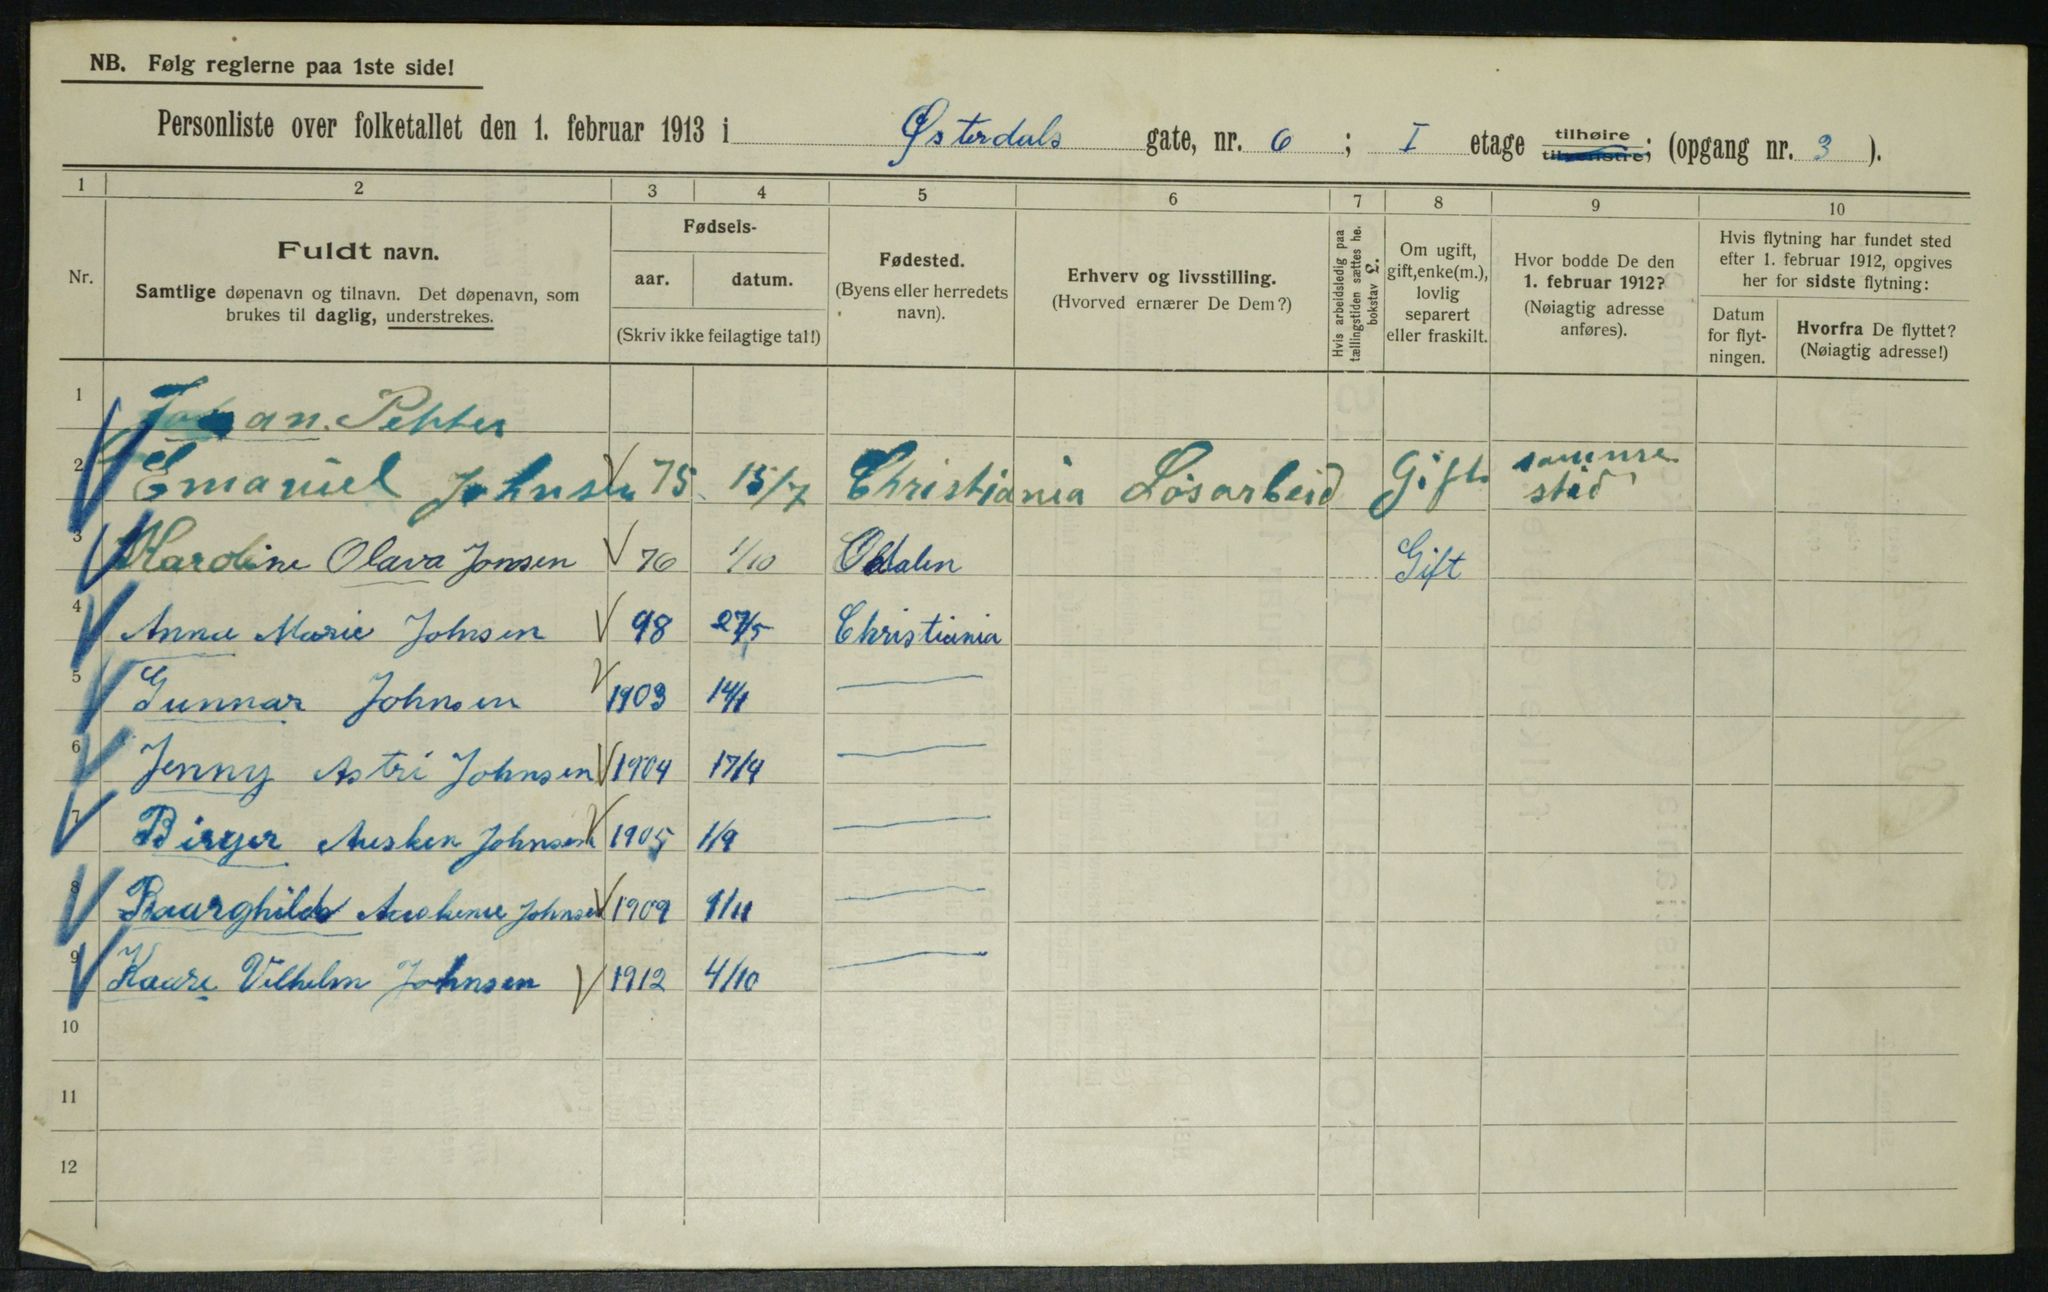 NB. Følg reglerne paa 1ste side!
Personliste over folketallet den 1. februar 1913 i Østerdals gate, nr. 6; I etage tilhøire tilvenstre; (opgang nr. 3).
1 2 3 4 5 6 7 8 9 10
Nr.
Fuldt navn.
Samtlige døpenavn og tilnavn. Det døpenavn, som
brukes til daglig, understrekes.
Fødsels-
aar. datum.
(Skriv ikke feilagtige tal!)
Fødested.
(Byens eller herredets
navn).
Erhverv og livsstilling.
(Hvorved ernærer De Dem?)
Hvis arbeidsledig paa
tællingstiden sættes he.
bokstav L.
Om ugift,
gift, enke(m.),
lovlig
separert
eller fraskilt.
Hvor bodde De den
1. februar 1912?
(Nøiagtig adresse
anføres).
Hvis flytning har fundet sted
efter 1. februar 1912, opgives
her for sidste flytning:
Datum
for flyt-
ningen.
Hvorfra De flyttet?
(Nøiagtig adresse!)
1 Johan Petter
2 Emanuel Johnsen 75 15/7 Christiania Løsarbeid Gift samme
sted
3 Karoline Olava Jonsen 76 1/10 Odalen Gift
4 Anna Marie Johnsen 98 27/5 Christiania
5 Gunnar Johnsen 1903 14/1
6 Jenny Astri Johnsen 1904 17/4
7 Birger Johnsen 1905 1/9
8 Baarghild Johnsen 1909 1/11
9 Kaare Vilhelm Johnsen 1912 4/10
10
11
12